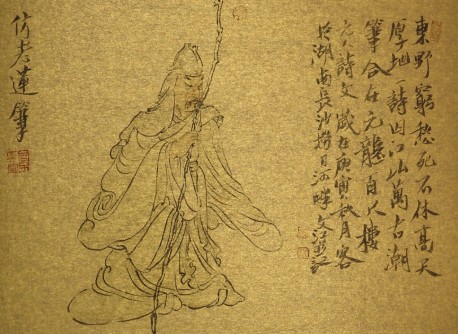 東野窮愁死不休高天
厚地一詩囚江山萬古潮
筆合在元龍百尺樓
元人詩文 歲在庚寅秋月客
於湖南長沙撈刀河畔文江記
仿老蓮筆